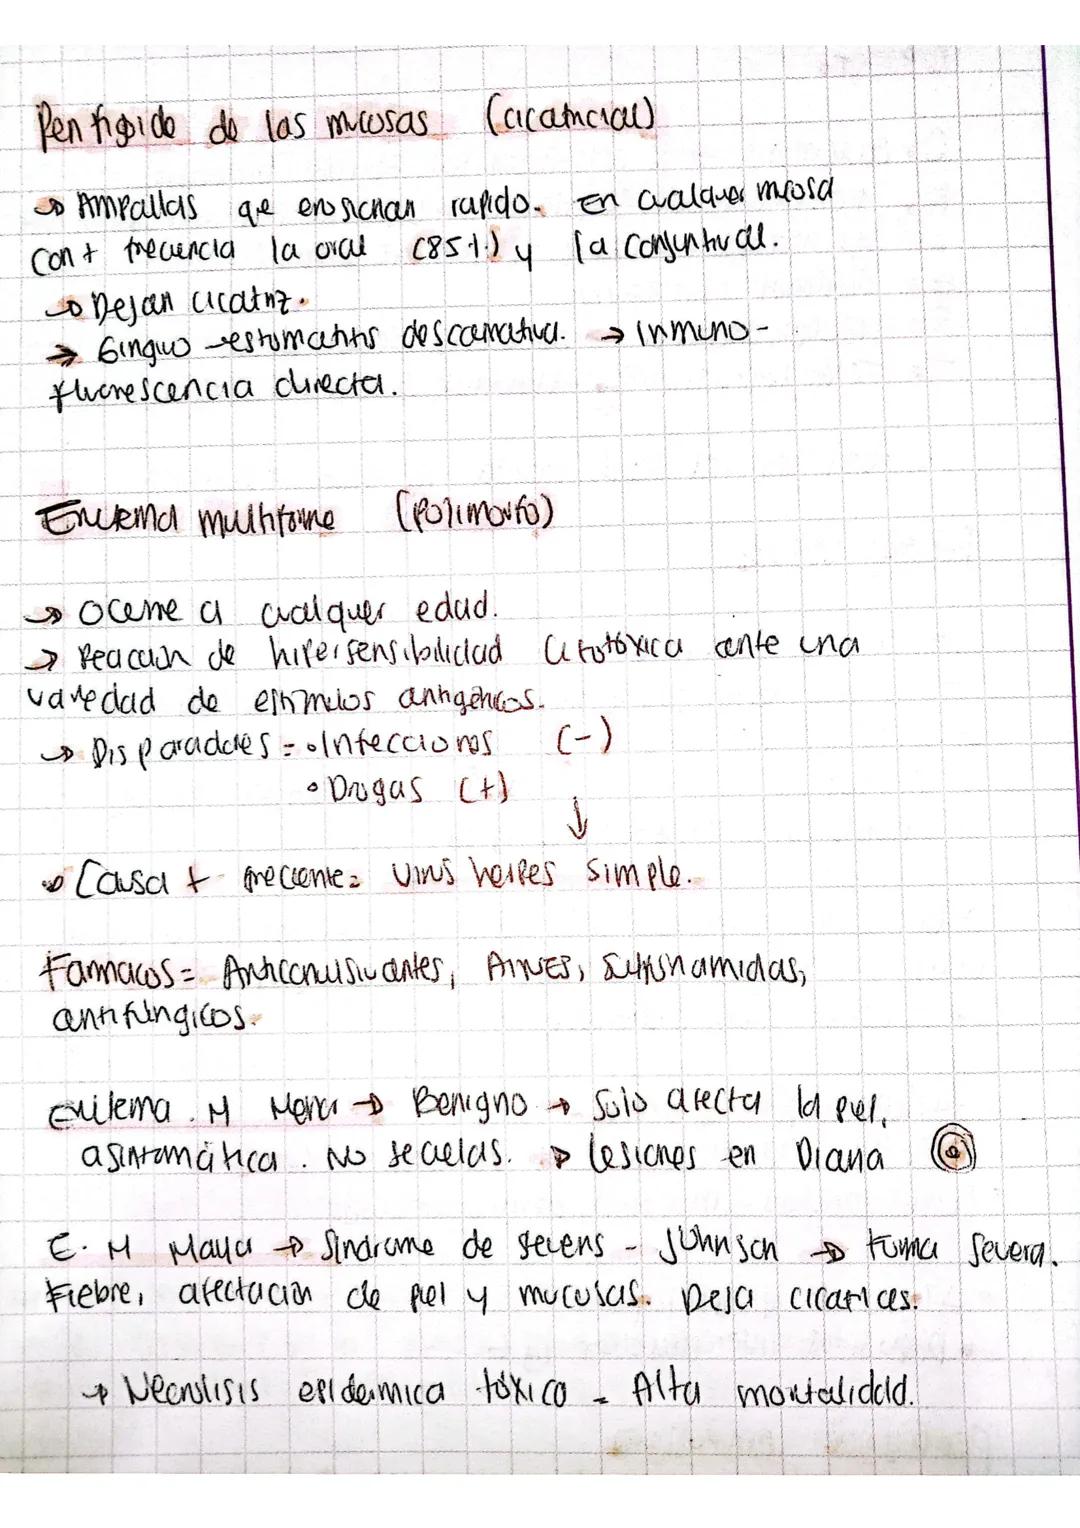 Penfigoide de las mucosas (cicatricial)
→ Ampallas que erosionan rapido. En cualquier mucosa
con + frecuencia la oral (85%) y la conjuntival.
→ Dejan cicatriz.
→ Gingivo-estomatitis descamativa. → Inmuno-
fluorescencia directa.
Eritema multiforme (polimorfo)
→ Ocurre a cualquier edad.
→ Reacción de hipersensibilidad citotóxica ante una
variedad de estímulos antigénicos.
→ Disparadores = • Infecciones (-)
• Drogas (+)
↓
→ Causa + frecuente = Virus herpes simple.
Farmacos = Anticonvulsivantes, AINES, Sulfonamidas,
antifúngicos.
Eritema M Menor → Benigno → Solo afecta la piel,
asintomática. No secuelas. → Lesiones en Diana
E. M Mayor → Sindrome de Stevens - Johnson → Forma Severa.
Fiebre, afectación de piel y mucosas. Deja cicatrices.
→ Necrolisis epidermica tóxico - Alta mortalidad.